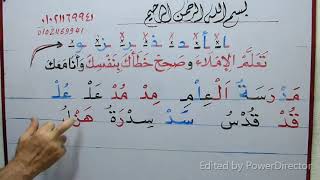 بسم الله الرحمن الرحيم
٠١٠٢١١٦٩٩٤١
01021169941
تَعَلَّمُ الإِمْلَاءَ وصَحِحْ خَطَأَكَ بِنَفْسِكَ وَأَنَا مَعَكَ
مَدْرَسَةُ الْعِلْمِ مِدْ مُدْ عَلْ عُلْ
قُدْ قُدْسُ سَدْ سِدْرَةٌ هَزْلُ
Edited by PowerDirector